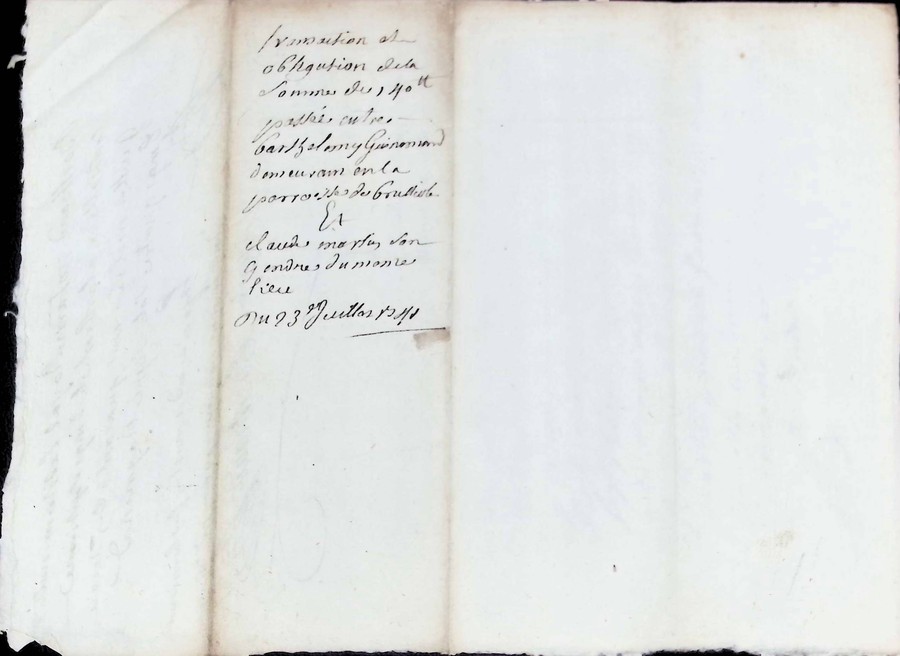 transaction et
obligation dela
Somme de 140tt
passée entre
barthelemy Guinomand
demeurant en la
parroisse de
Et
claude martin son
gendre du mome
lieu
Du 23e Juillet 1741